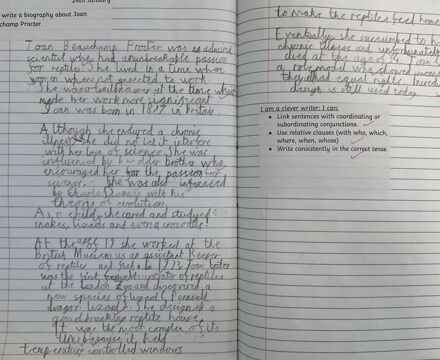 24th January
write a biography about Joan
champ Procter.
Joan Beauchamp Procter was an admired
scientist who had an unbreakable passion
for reptiles. She lived in a time where
women when not expected to work
She was a trailblazer at the time which
made her work more significant.
Joan was born in 1897 in Britain.
Although she endured a chronic
illness, she did not let it interfere
with her love of science. She was
influenced by her older brother who
encouraged her for the passion for
science. She was also influenced
by Charles Darwin with his
theory of evolution.
As a child, she cared and studied
snakes, lizards and even a crocodile!
At the age of 19 she worked at the
British Museum as an assistant Keeper
of reptiles and fish. In 1923 Joan later
was the first female curator of reptiles
at the London Zoo and discovered a
new species of lizard (Peninsula
dragon lizard). She designed a
groundbreaking reptile house.
It was the most complex of its
time because it held
temperature controlled windows
to make the reptiles feel home
Eventually she succumbed to her
chronic illness and unfortunately
died at the age of 34. Joan is
a role model who showed women
they had equal rights. her
design is still used today.
I am a clever writer: I can:
• Link sentences with coordinating or
subordinating conjunctions.
• Use relative clauses (with who, which,
where, when, whose)
• Write consistently in the correct tense.